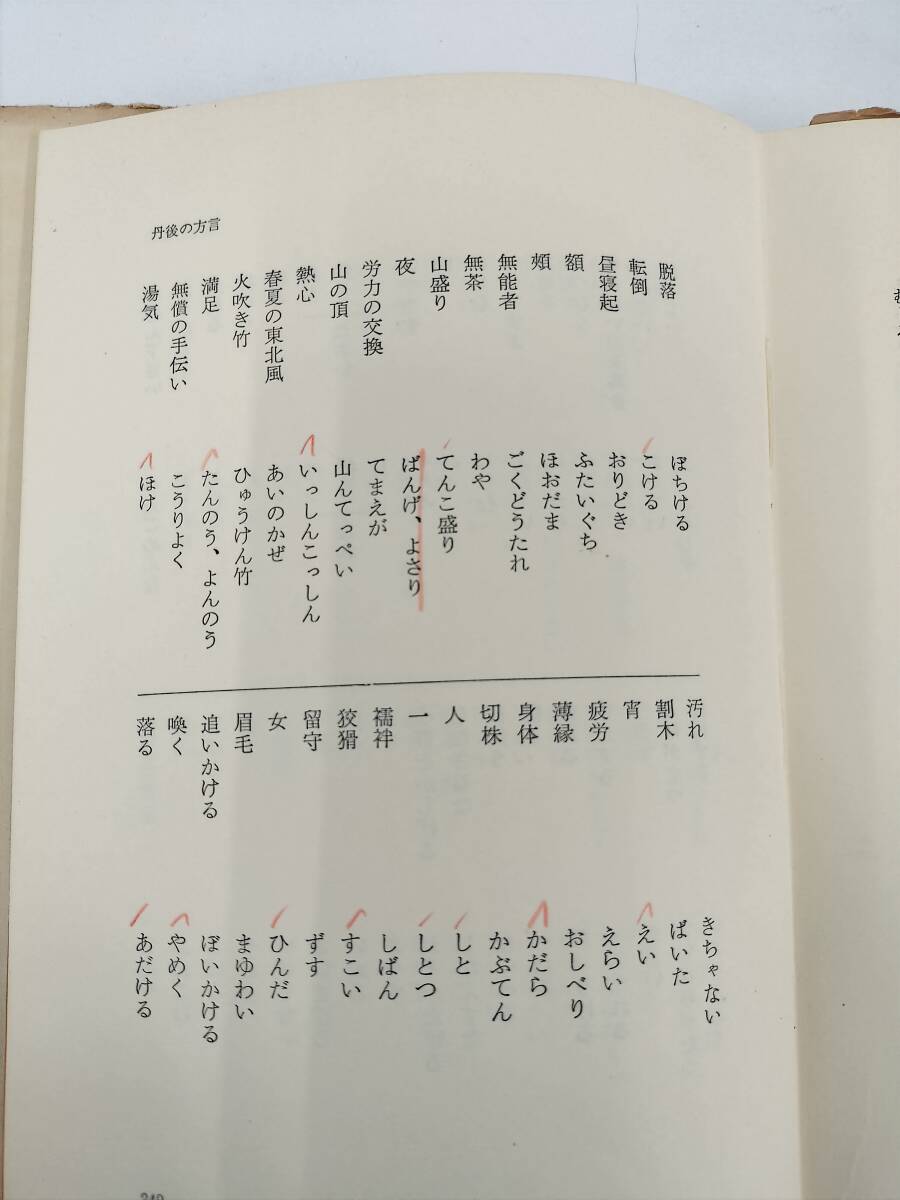 丹後の方言
脱落 ぼちける
転倒 こける
昼寝起 おりどき
額 ふたいぐち
頰 ほおだま
無能者 ごくどうたれ
無茶 わや
山盛り てんこ盛り
夜 ばんげ、よさり
労力の交換 てまえが
山の頂 山んてっぺい
熱心 いっしんこっしん
春夏の東北風 あいのかぜ
火吹き竹 ひゅうけん竹
満足 たんのう、よんのう
無償の手伝い こうりよく
湯気 ほけ
汚れ きちゃない
割木 ばいた
宵 えい
疲労 えらい
薄縁 おしべり
身体 かだら
切株 かぶてん
人 しと
一 しとつ
襦袢 しばん
狡猾 すこい
留守 ずす
女 ひんだ
眉毛 まゆわい
追いかける ぼいかける
喚く やめく
落る あだける